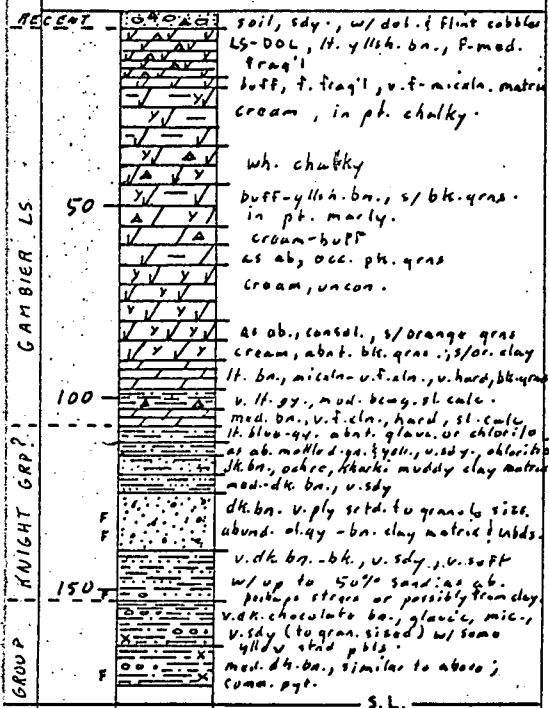 RECENT
soil, sdy., w/ dol. & flint cobbles
LS-DOL, lt. yllsh. bn., F-med.
frag'l
buff, f. frag'l, v.f-micaln. matrix
cream, in pt. chalky.
wh. chalky
50
buff-yllsh. bn., s/ bk. grns.
in pt. marly.
cream-buff
as ab, occ. pk. grns
cream, uncon.
GAMBIER LS.
as ab., consol., s/orange grns
cream, abnt. blk. grns.; s/or. clay
lt. bn., micaln-v.f.aln., v.hard, bk. grns
100
v. lt. gy., mud. bcmg. sl. calc.
med. bn., v.f.cln., hard, sl. calc
lt. blue-gy. abnt. glauc. or chlorite
as ab. mottled gn. & yell., v.sdy., chloritic
dk. bn., ochre, khaki muddy clay matrix
med-dk. bn., v.sdy
KNIGHT GRP?
F
F
dk. bn. v. ply srtd. to granule size.
abund. ol. gy-bn. clay matrix & inbds.
v. dk. bn.-bk., v.sdy., v.soft
w/ up to 50% sand: as ab.
150
F
perhaps strgrs or possibly from clay.
v.dk. chocolate bn., glauc, mic.,
v.sdy (to gran. sized) w/ some
yllow stnd pbls.
GROUP
F
med. dk. bn., similar to above;
comm. pyt.
S.L.